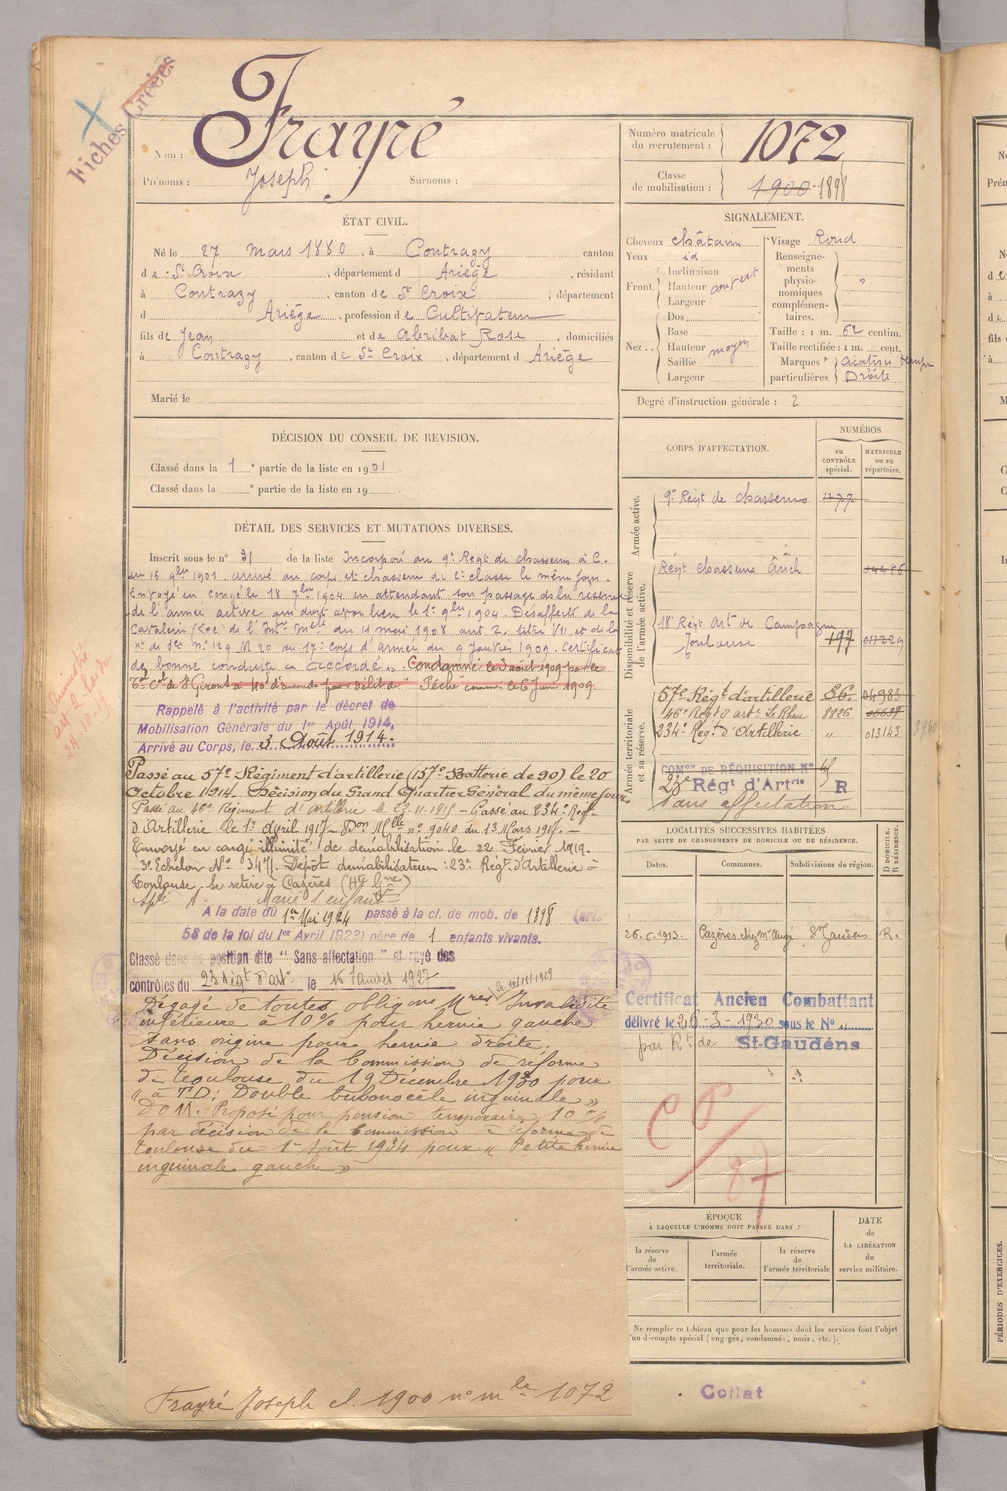 Fiches Créées
Nom : Frayré
Prénoms : Joseph Surnoms :
Numéro matricule du recrutement : 1072
Classe de mobilisation : 1900 1898
ÉTAT CIVIL.
Né le 27 mars 1880, à Contrazy canton
de St Croix, département d Ariège, résidant
à Contrazy, canton de St Croix, département
d Ariège, profession de Cultivateur
fils de Jean et de Abribat Rose, domiciliés
à Contrazy, canton de St Croix, département d Ariège
Marié le
SIGNALEMENT.
Cheveux châtain
Yeux id
Front. Inclinaison
Hauteur couvert
Largeur
Nez. Dos
Base
Hauteur moyen
Saillie
Largeur
Visage Rond
Renseignements physionomiques complémentaires. "
Taille : 1 m. 62 centim.
Taille rectifiée : 1 m. cent.
Marques particulières. Droite
Degré d'instruction générale : 2
DÉCISION DU CONSEIL DE REVISION.
Classé dans la 1e partie de la liste en 1901.
Classé dans la e partie de la liste en 19
DÉTAIL DES SERVICES ET MUTATIONS DIVERSES.
Inscrit sous le n° 31 de la liste Incorporé au 9e Régt de chasseurs à C.
du 16 9bre 1901. arrivé au corps et chasseur de 2e classe le même jour.
Envoyé en congé le 18 7bre 1904 en attendant son passage dans la réserve
de l'armée active qui doit avoir lieu le 1er 9bre 1904. Désaffecté de la
Cavalerie du 11 mai 1908 art. 2. titre VII et de la
n° 129 M 20 du 17e corps d'armée du 9 Janvier 1909. Certificat
de bonne conduite "Accordé". Condamné le 3 août 1909 par le
de St Girons à 40f d'amende pour délit de "Pêche" commis le 6 Juin 1909.
Rappelé à l'activité par le décret de
Mobilisation Générale du 1er Août 1914.
Arrivé au Corps, le 3 Août 1914.
Passé au 57e Régiment d'artillerie (157e Batterie de 90) le 20
Octobre 1914. Décision du Grand Quartier Général du même jour.
Passé au 46e Régiment d'artillerie le 22.11.1915 - Passé au 234e Régt
d'Artillerie le 1er Avril 1917 - Don Mlle n° 9040 du 13 Mars 1917. -
Envoyé en congé illimité de démobilisation le 22 Février 1919.
3e Echelon N° 3471. Dépôt démobilisateur : 23e Régt d'Artillerie à
Toulouse, se retire à Cazères (Hte Gne)
Marié 1 enfant
A la date du 1er Mai 1924 passé à la cl. de mob. de 1898 (art.
58 de la loi du 1er Avril 1923) père de 1 enfants vivants.
Classé dans la position dite "Sans affectation" et rayé des
contrôles du 23 Régt d'art. le 15 Janvier 1927
Dégagé de toutes obligons Mres Invalidité
inférieure à 10% pour hernie gauche
sans origine pour hernie droite.
Décision de la Commission de réforme
de Toulouse du 19 Décembre 1930 pour
" à TD: Double bubonocèle inguinale "
DOM. Proposé pour pension temporaire 10%
par décision de la Commission de réforme de
Toulouse du 1er Août 1934 pour " Petite hernie
inguinale gauche "
Frayré Joseph cl. 1900 n° mle 1072
CORPS D'AFFECTATION.
NUMÉROS
au CONTRÔLE spécial.
MATRICULE ou au répertoire.
Armée active.
9e Régt de chasseurs 1277
Disponibilité et réserve de l'armée active.
Régt chasseurs Auch
18e Régt Art de Campagne
Toulouse 197
Armée territoriale et sa réserve.
57e Régt d'artillerie 86 04983
46e Régt d'art. 8826
234e Régt d'Artillerie " 013143
COMon DE RÉQUISITION N°
23e Régt d'Artrie R
sans affectation
LOCALITÉS SUCCESSIVES HABITÉES
PAR SUITE DE CHANGEMENTS DE DOMICILE OU DE RÉSIDENCE.
Dates. Communes. Subdivisions de région. D DOMICILE. R RÉSIDENCE.
26.6.1913. Cazères St Gaudens R.
Certificat Ancien Combattant
délivré le 26-3-1930 sous le N°
par Rt de St-Gaudens
CP/27
ÉPOQUE
À LAQUELLE L'HOMME DOIT PASSER DANS :
la réserve de l'armée active.
l'armée territoriale.
la réserve de l'armée territoriale
DATE de LA LIBÉRATION du service militaire.
Ne remplir ce tableau que pour les hommes dont les services font l'objet
d'un décompte spécial (engagés, condamnés, omis, etc.).
Collat
PÉRIODES D'EXERCICES.